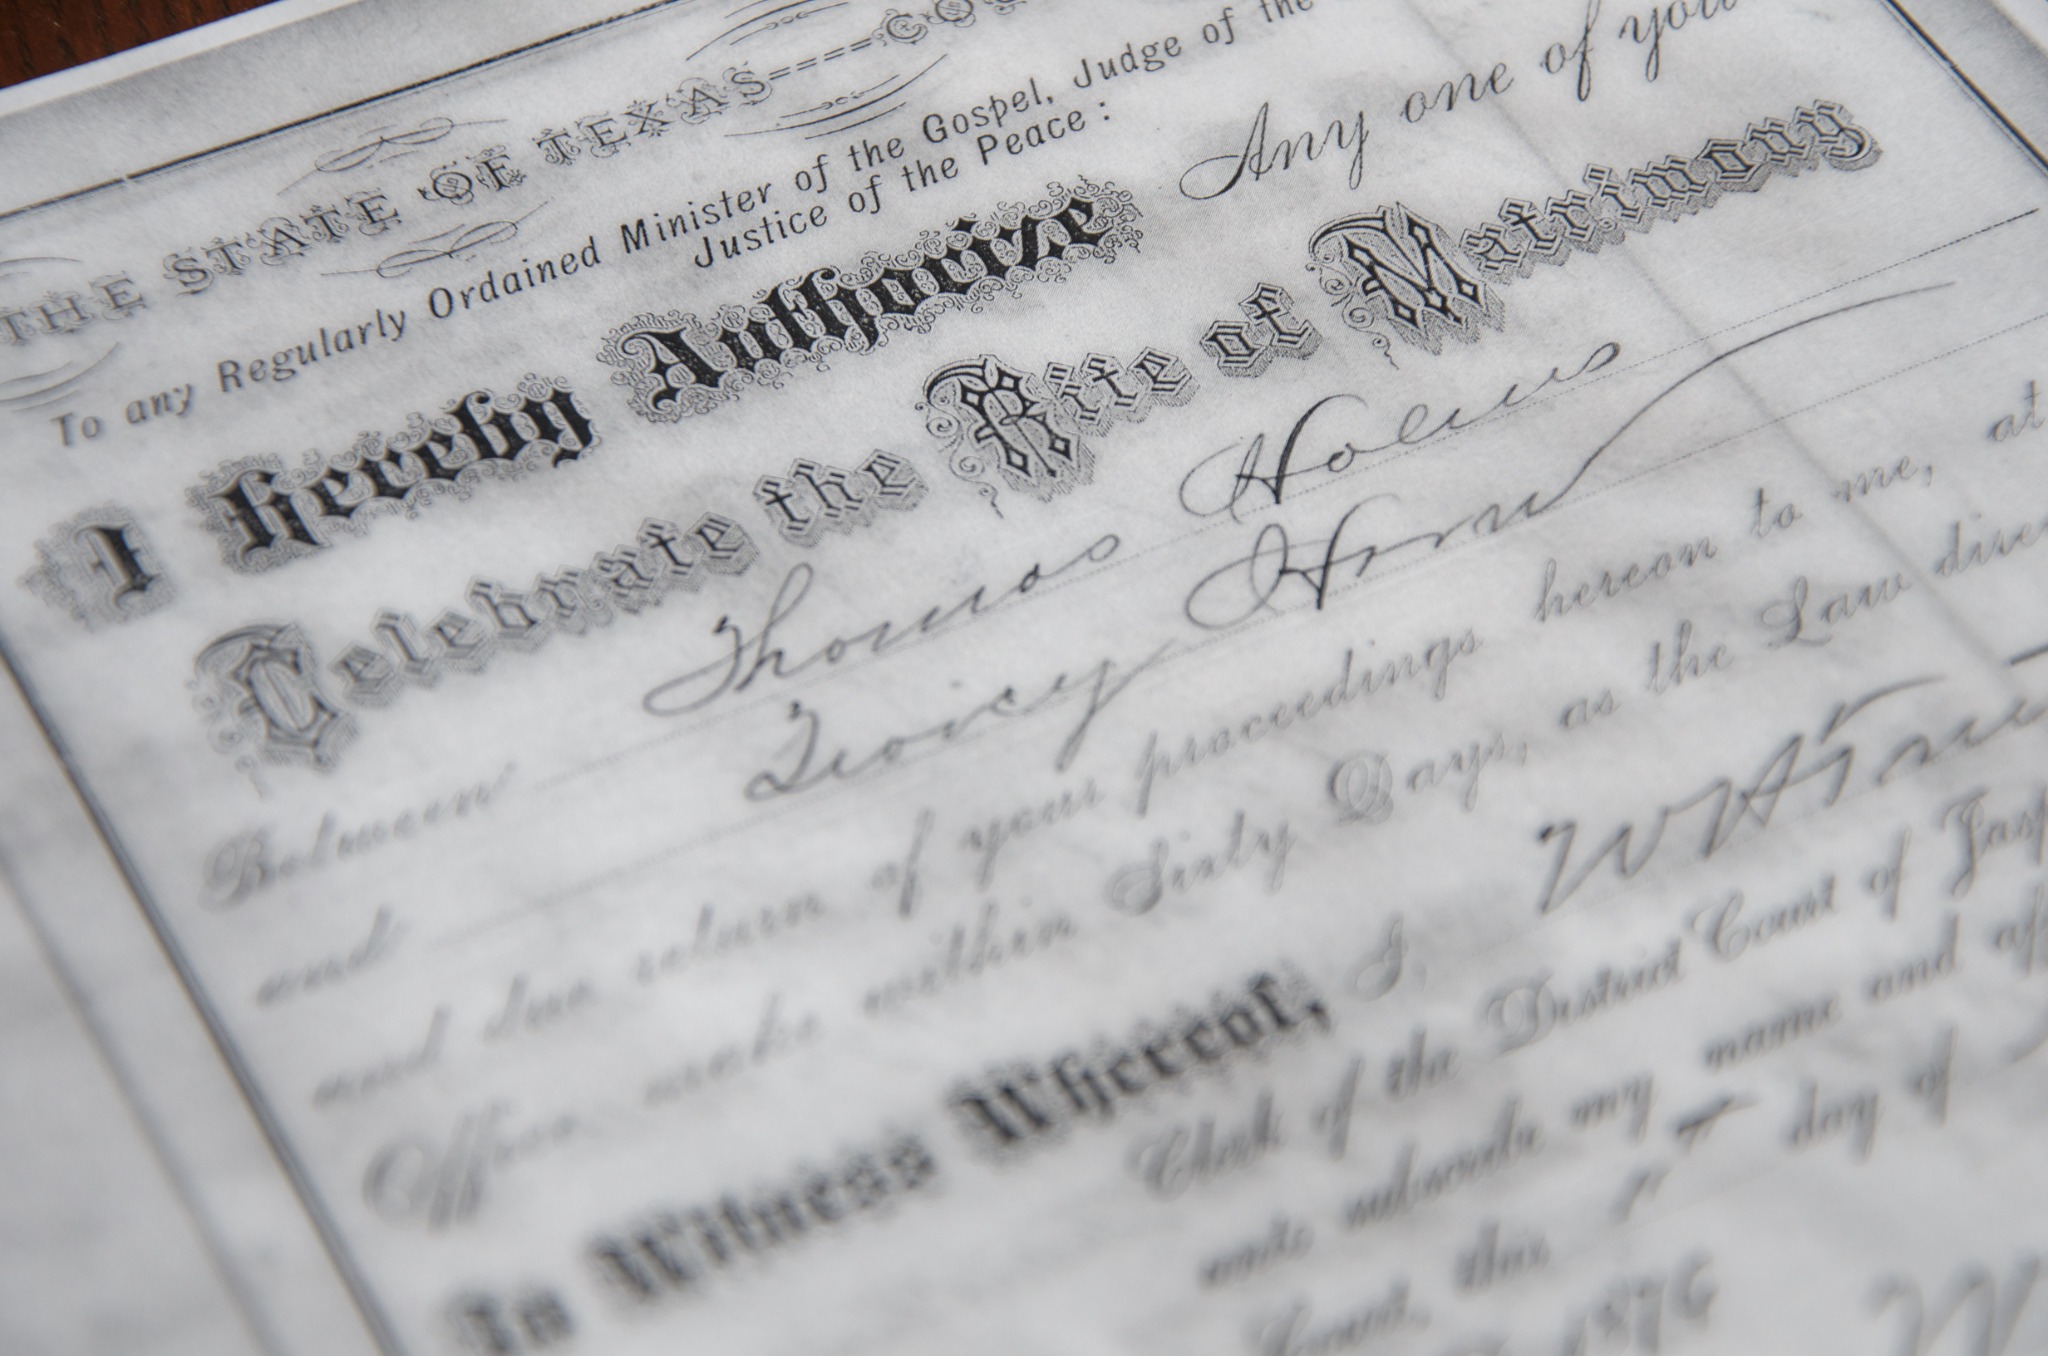 THE STATE OF TEXAS====CO
To any Regularly Ordained Minister of the Gospel, Judge of the
Justice of the Peace:
I Hereby Authorize Any one of you
Celebrate the Rite of Matrimony
Between Thomas
and
and due return of your proceedings hereon to me, at
Office, make within Sixty Days, as the Law direc
In Witness Whereof, I,
Clerk of the District Court of Jasp
unto subscribe my name and aff
Court, this day of
1876